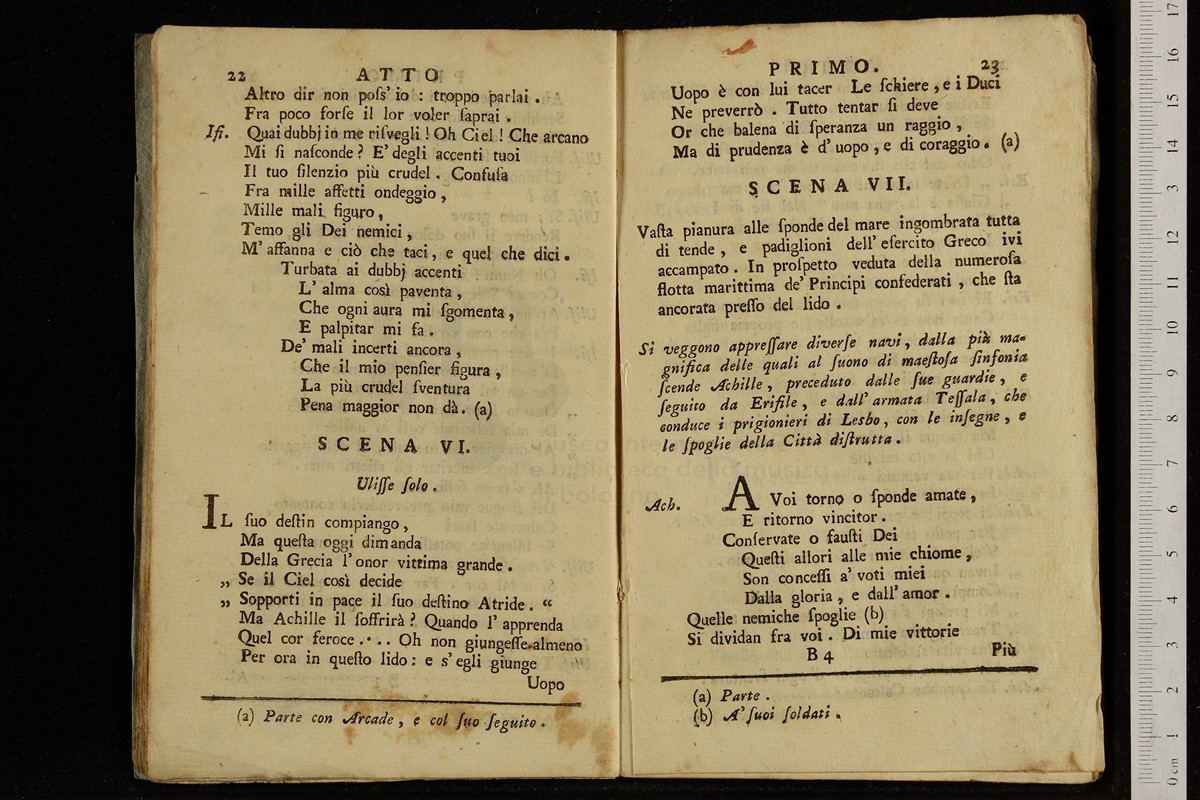 22 ATTO
Altro dir non poſs' io : troppo parlai .
Fra poco forſe il lor voler ſaprai .
Iſi. Quai dubbj in me riſvegli ! Oh Ciel ! Che arcano
Mi ſi naſconde ? E' degli accenti tuoi
Il tuo ſilenzio più crudel . Confuſa
Fra mille affetti ondeggio ,
Mille mali figuro ,
Temo gli Dei nemici ,
M' affanna e ciò che taci, e quel che dici .
Turbata ai dubbj accenti
L' alma così paventa ,
Che ogni aura mi ſgomenta ,
E palpitar mi fa .
De' mali incerti ancora ,
Che il mio penſier figura ,
La più crudel ſventura
Pena maggior non dà . (a)
SCENA VI.
Uliſſe ſolo .
IL ſuo deſtin compiango ,
Ma queſta oggi dimanda
Della Grecia l' onor vittima grande .
„ Se il Ciel così decide
„ Sopporti in pace il ſuo deſtino Atride . “
Ma Achille il ſoffrirà ? Quando l' apprenda
Quel cor feroce .... Oh non giungeſſe almeno
Per ora in queſto lido : e s' egli giunge
Uopo
(a) Parte con Arcade , e col ſuo ſeguito .
PRIMO. 23
Uopo è con lui tacer Le ſchiere , e i Duci
Ne preverrò . Tutto tentar ſi deve
Or che balena di ſperanza un raggio ,
Ma di prudenza è d' uopo , e di coraggio . (a)
SCENA VII.
Vaſta pianura alle ſponde del mare ingombrata tutta
di tende , e padiglioni dell' eſercito Greco ivi
accampato . In proſpetto veduta della numeroſa
flotta marittima de' Principi confederati , che ſta
ancorata preſſo del lido .
Si veggono appreſſare diverſe navi , dalla più ma-
gnifica delle quali al ſuono di maeſtoſa ſinfonia
ſcende Achille , preceduto dalle ſue guardie , e
ſeguito da Erifile , e dall' armata Teſſala , che
conduce i prigionieri di Lesbo , con le inſegne , e
le ſpoglie della Città diſtrutta .
Ach. A Voi torno o ſponde amate ,
E ritorno vincitor .
Conſervate o fauſti Dei
Queſti allori alle mie chiome ,
Son conceſſi a' voti miei
Dalla gloria , e dall' amor .
Quelle nemiche ſpoglie (b)
Si dividan fra voi . Di mie vittorie
B 4 Più
(a) Parte .
(b) A' ſuoi ſoldati .